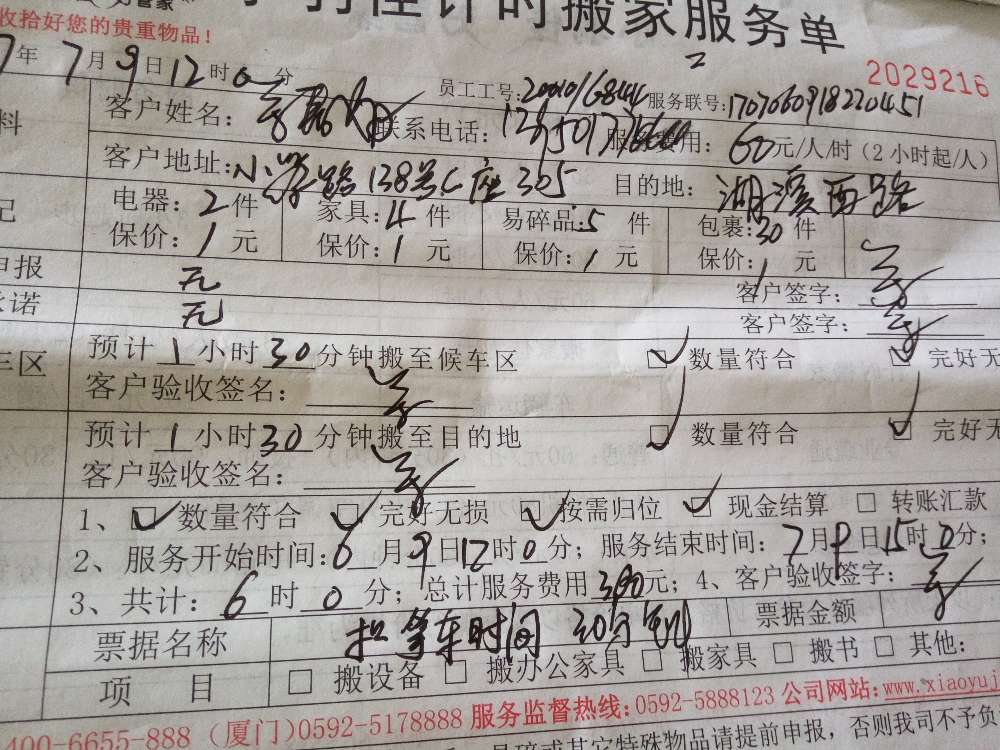 计时搬家服务单
收拾好您的贵重物品！
7年7月9日12时0分 员工工号: 服务联号:1707060918220451 2029216
客户姓名: 联系电话: 服务费用:60元/人/时(2小时起/人)
客户地址:小学路138号C座305 目的地:湖滨西路
电器:2件 家具:4件 易碎品:5件 包裹:30件
保价:1元 保价:1元 保价:1元 保价:1元
申报 无 客户签字:
承诺 无 客户签字:
车区 预计1小时30分钟搬至候车区 数量符合 完好无
客户验收签名:
预计1小时30分钟搬至目的地 数量符合 完好无
客户验收签名:
1、数量符合 完好无损 按需归位 现金结算 转账汇款
2、服务开始时间: 月9日12时0分；服务结束时间:7月9日15时0分；
3、共计:6时0分；总计服务费用 元；4、客户验收签字:
票据名称 扣 车时间30分 票据金额
项目 搬设备 搬办公家具 搬家具 搬书 其他:
400-6655-888 (厦门)0592-5178888 服务监督热线:0592-5888123 公司网站:www.xiaoyuj
易碎或其它特殊物品请提前申报，否则我司不予负